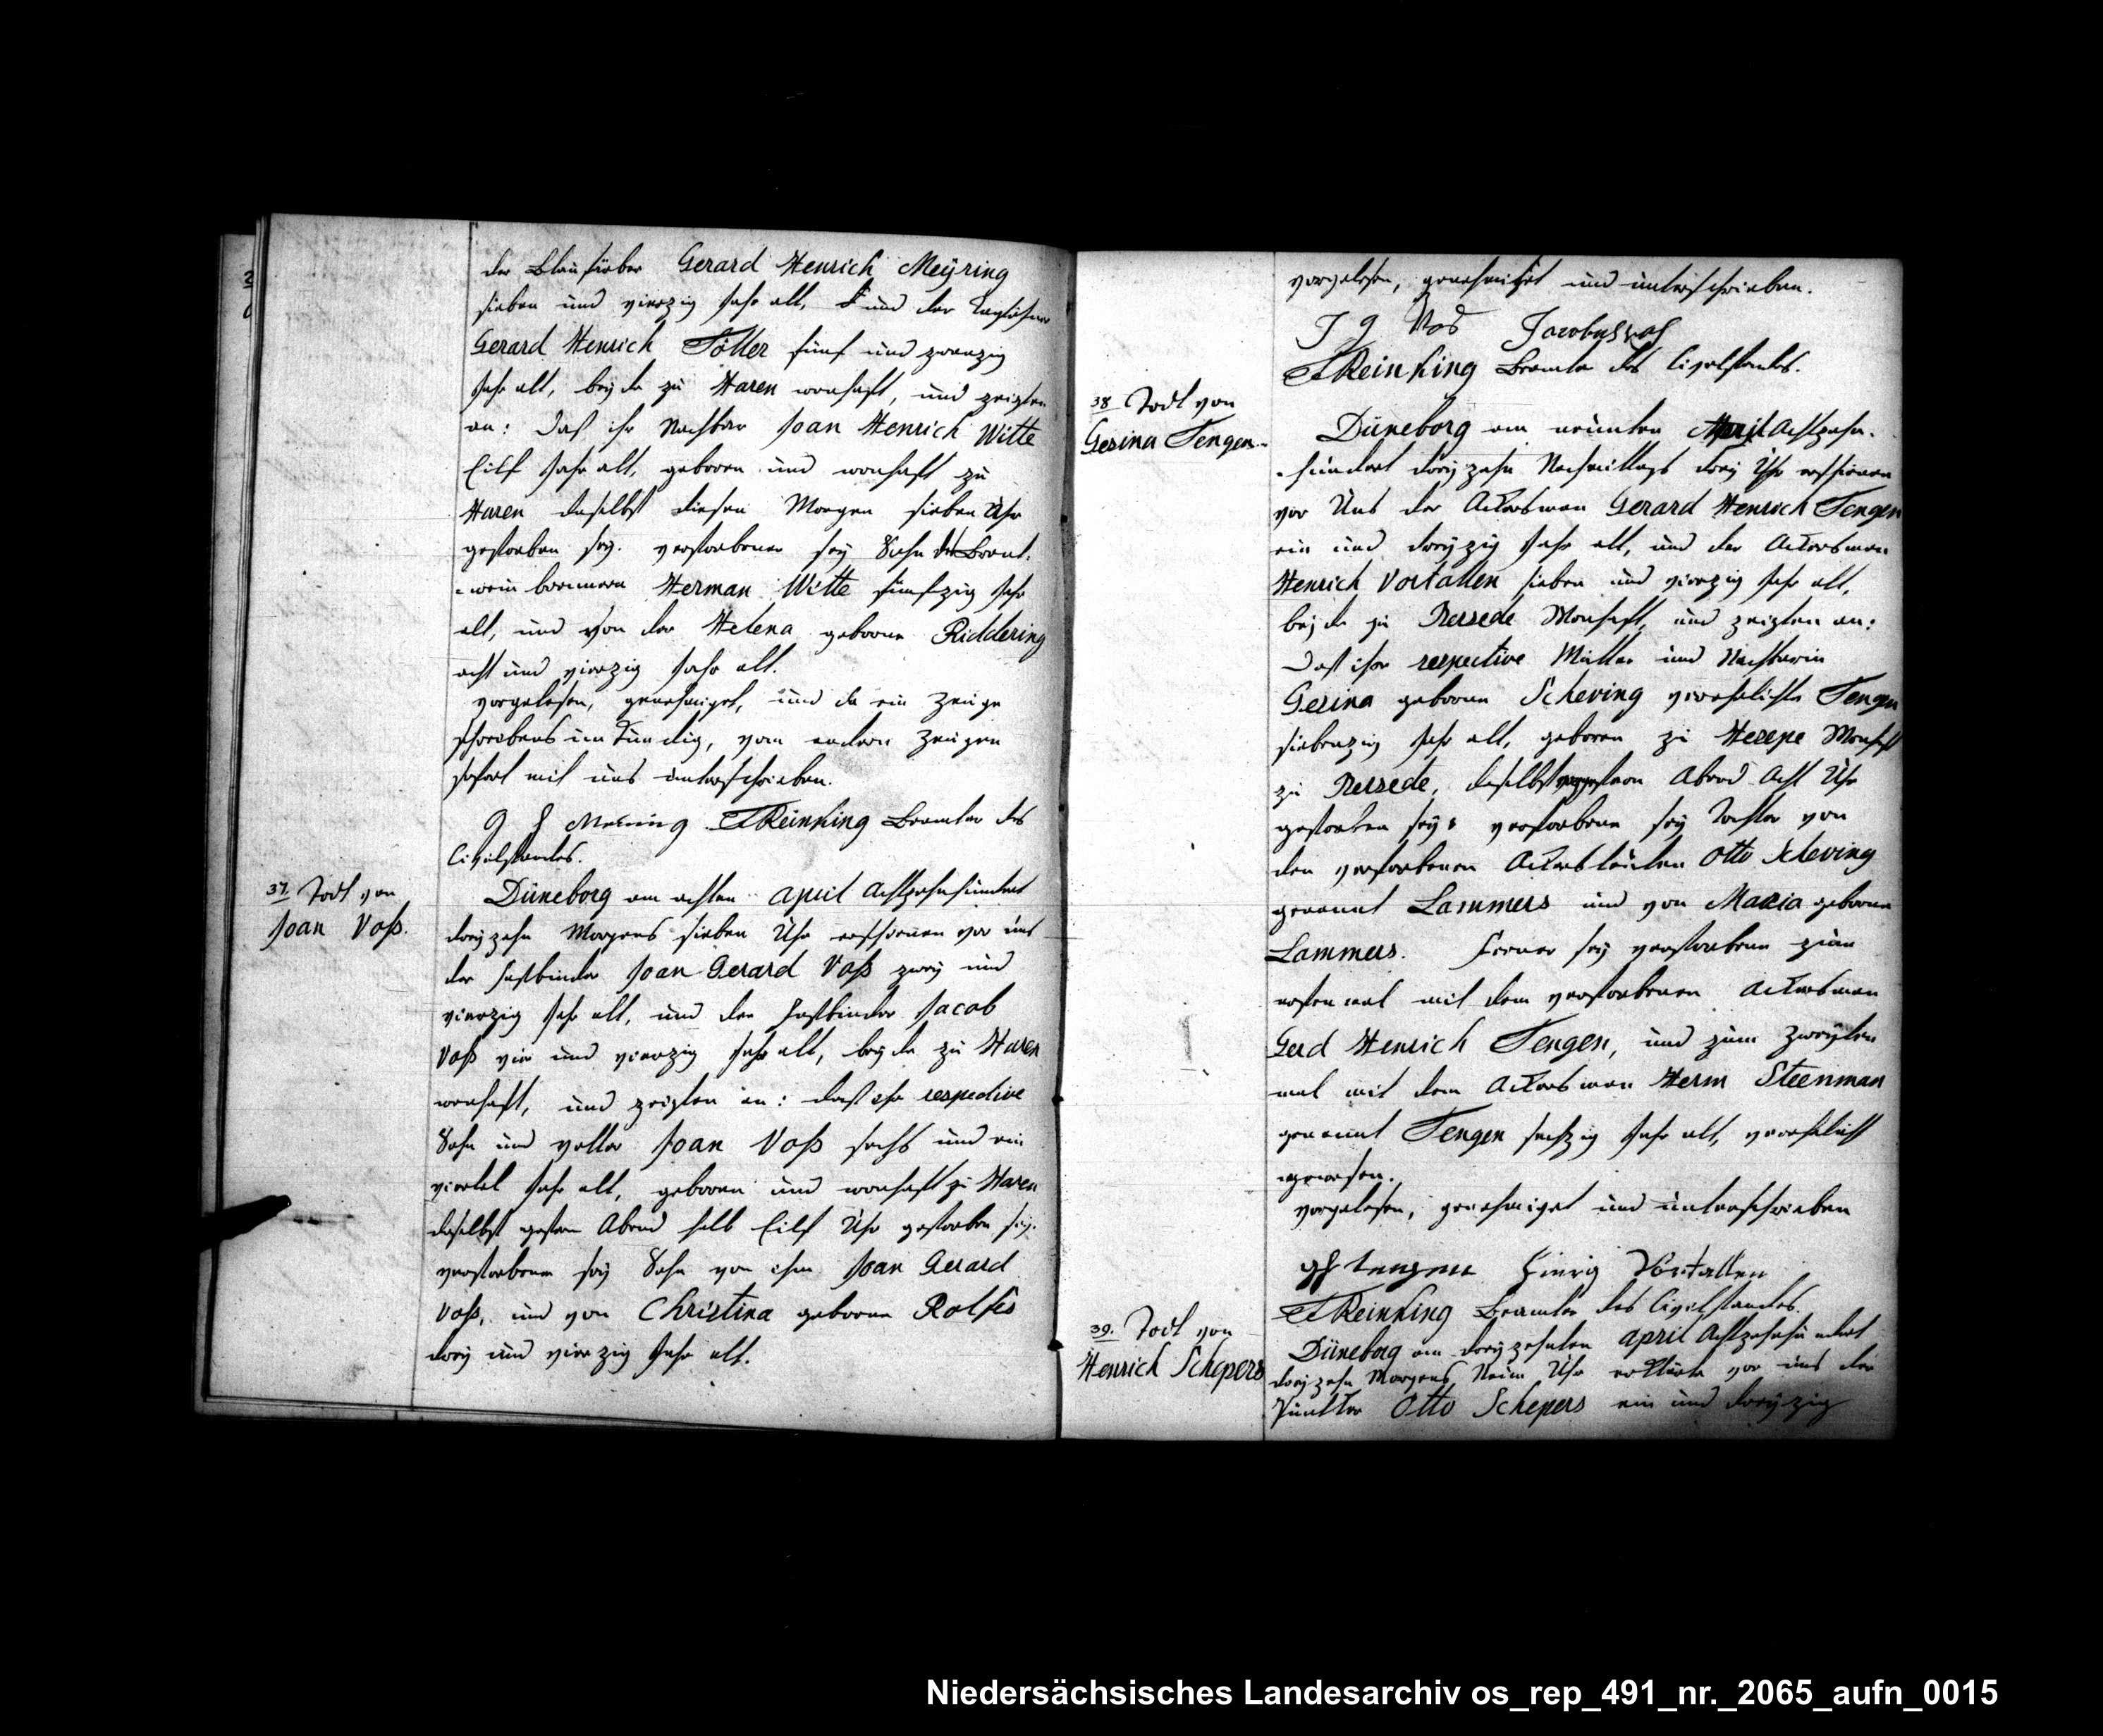 der Blaufärber Gerard Henrich Meÿring
sieben und vierzig Jahr alt, und der Taglöhner
Gerard Henrich Töller fünf und zwanzig
Jahr alt, beÿde zu Haren wonhaft, und zeigten
an: Daß ihr Nachbar Joan Henrich Witte
Eilf Jahr alt, geboren und wonhaft zu
Haren daselbst diesen Morgen sieben Uhr
gestorben seÿ. verstorbener seÿ Sohn des Brant-
-wein brenners Herman Witte fünfzig Jahr
alt, und von der Helena geborne Riddering
acht und vierzig Jahr alt.
vorgelesen, genehmiget, und da ein Zeuge
schreibens unkündig, vom andern Zeugen
sofort mit uns unterschrieben.
G H Meÿring Reinking Beamter des
Civilstandes.
37. Todt von
Joan Voß.
Düneborg am achten april Achtzehnhundert
dreÿzehn Morgens sieben Uhr erschienen vor uns
der Fastbinder Joan Gerard Voß zweÿ und
vierzig Jahr alt, und der Fastbinder Jacob
Voß vier und vierzig Jahr alt, beÿde zu Haren
wonhaft, und zeigten an: daß ihr respective
Sohn und vetter Joan Voß sechs und ein
viertel Jahr alt, geboren und wonhaft zu Haren
daselbst gestern Abend halb Eilf Uhr gestorben seÿ.
verstorbener seÿ Sohn von ihm Joan Gerard
Voß, und von Christina geborne Rolfes
dreÿ und vierzig Jahr alt.
vorgelesen, genehmiget und unterschrieben.
J G Vos Jacobus vos
Reinking Beamter des Civilstandes.
38 Todt von
Gesina Tengen
Düneborg am neunten April Achtzehn-
-hundert dreÿzehn Nachmittags dreÿ Uhr erschienen
vor Uns der Ackersman Gerard Henrich Tengen
ein und dreÿzig Jahr alt, und der Ackersman
Henrich Vortallen sieben und vierzig Jahr alt,
beÿde zu Wonhaft, und zeigten an:
Daß ihre respective Mutter und Nachbarin
Gesina geborne Scheving verehelichte Tengen
siebenzig Jahr alt, geboren zu Herepe Wonhaft
zu daselbst Abend Acht Uhr
gestorben seÿ. verstorbene seÿ Tochter von
den verstorbenen Ackersleuten Otto Scheving
genannt Lammers und von Maria geborne
Lammers. Ferner seÿ verstorbene zum
ersten mal mit dem verstorbenen Ackersman
Gerd Henrich Tengen, und zum zweÿten
mal mit dem Ackersman Herm Steenman
genannt Tengen sechzig Jahr alt, verehelicht
gewesen.
vorgelesen, genehmiget und unterschrieben
GH tengen Hinrig Vortallen
Reinking Beamter des Civilstandes.
39. Todt von
Henrich Schepers
Düneborg am dreÿzehnten april Achtzehnhundert
dreÿzehn Morgens Neun Uhr erklärte vor uns der
Pünkter Otto Schepers ein und dreÿzig
Niedersächsisches Landesarchiv os_rep_491_nr._2065_aufn_0015